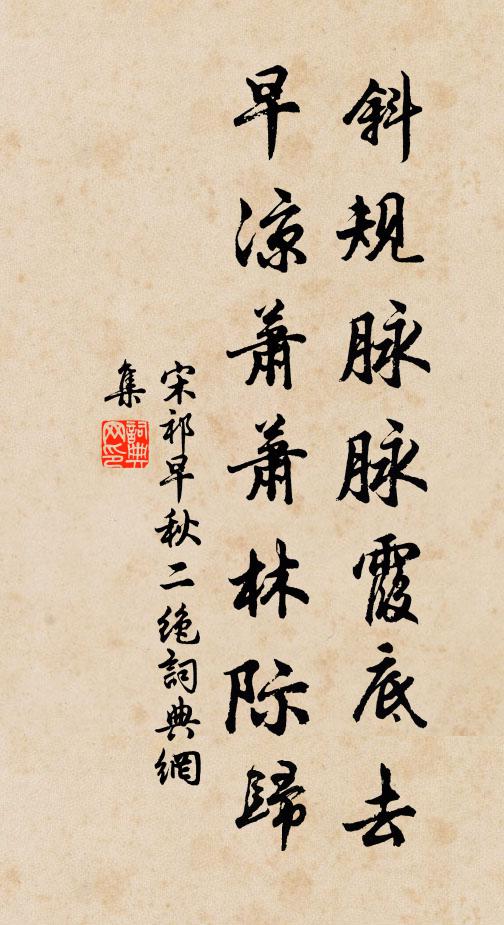 斜规脉脉霞底去
早凉萧萧林际歸
宋祁早秋二绝詞典網
集
詞典网印